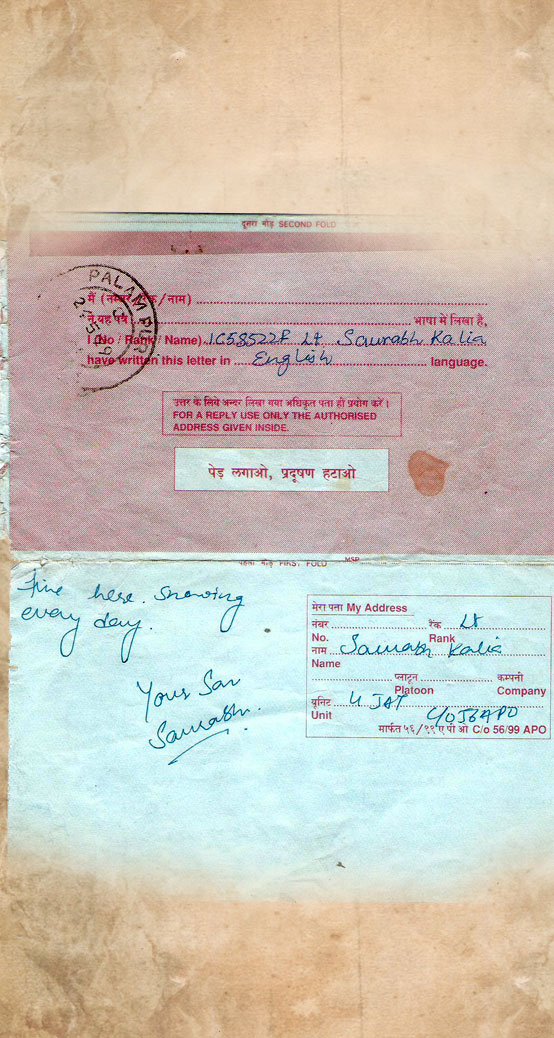 दूसरा मोड़ SECOND FOLD
PALAMPUR
मैं (नम्बर/रैंक/नाम)
ने यह पत्र भाषा में लिखा है,
I (No / Rank / Name) IC58522F Lt Saurabh Kalia
have written this letter in English language.
उत्तर के लिये अन्दर लिखा गया अधिकृत पता ही प्रयोग करें।
FOR A REPLY USE ONLY THE AUTHORISED
ADDRESS GIVEN INSIDE.
पेड़ लगाओ, प्रदूषण हटाओ
पहला मोड़ FIRST FOLD MSP
Fine here. Snowing
every day.
Your Son
Saurabh.
मेरा पता My Address
नंबर रैंक Lt
No. Rank
नाम Saurabh Kalia
Name
प्लाटून कम्पनी
Platoon Company
यूनिट 4 JAT
Unit C/O 56 APO
मार्फत ५६/९९ ए पी ओ C/o 56/99 APO